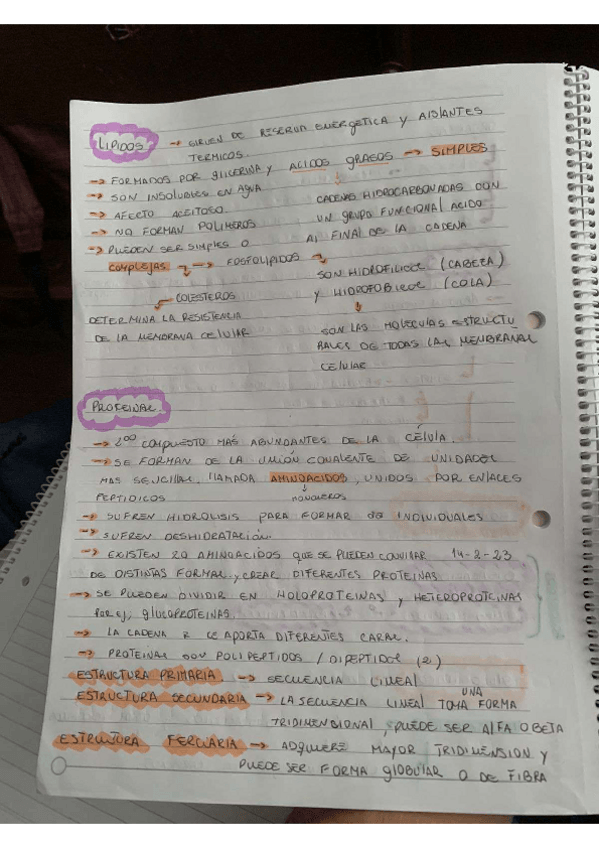 LIPIDOS → SIRVEN DE RESERVA ENERGETICA Y AISLANTES
TERMICOS.
→ FORMADOS POR GLICERINA Y ACIDOS GRASOS → SIMPLES
→ SON INSOLUBLES EN AGUA
CADENAS HIDROCARBONADAS CON
→ AFECTO ACEITOSO
UN GRUPO FUNCIONAL ACIDO
→ NO FORMAN POLIMEROS
AL FINAL DE LA CADENA
→ PUEDEN SER SIMPLES O
COMPLEJAS → FOSFOLIPIDOS
SON HIDROFILICOS (CABEZA)
Y HIDROFOBICOS (COLA)
COLESTEROS
DETERMINA LA RESISTENCIA
DE LA MEMBRANA CELULAR
SON LAS MOLECULAS ESTRUCTU
RALES DE TODAS LAS MEMBRANAS
CELULAR
PROTEINAS
→ 2DO COMPUESTO MAS ABUNDANTES DE LA CÉLULA.
→ SE FORMAN DE LA UNIÓN COVALENTE DE UNIDADES
MAS SENCILLAS, LLAMADA AMINOACIDOS, UNIDOS POR ENLACES
PEPTIDICOS
MONOMEROS
→ SUFREN HIDROLISIS PARA FORMAR INDIVIDUALES
→ SUFREN DESHIDRATACIÓN.
→ EXISTEN 20 AMINOACIDOS QUE SE PUEDEN 14-2-23
DE DISTINTAS FORMAS Y CREAR DIFERENTES PROTEINAS
→ SE PUEDEN DIVIDIR EN HOLOPROTEINAS Y HETEROPROTEINAS
POR EJ, GLUCOPROTEINAS.
→ LA CADENA R LE APORTA DIFERENTES CARAC.
→ PROTEINAS SON POLIPEPTIDOS / DIPEPTIDOS (2)
ESTRUCTURA PRIMARIA → SECUENCIA LINEAL
ESTRUCTURA SECUNDARIA → LA SECUENCIA LINEAL TOMA UNA FORMA
TRIDIMENCIONAL, PUEDE SER ALFA O BETA
ESTRUTURA TERCIARIA → ADQUIERE MAYOR TRIDIMENSION Y
PUEDE SER FORMA GLOBULAR O DE FIBRA